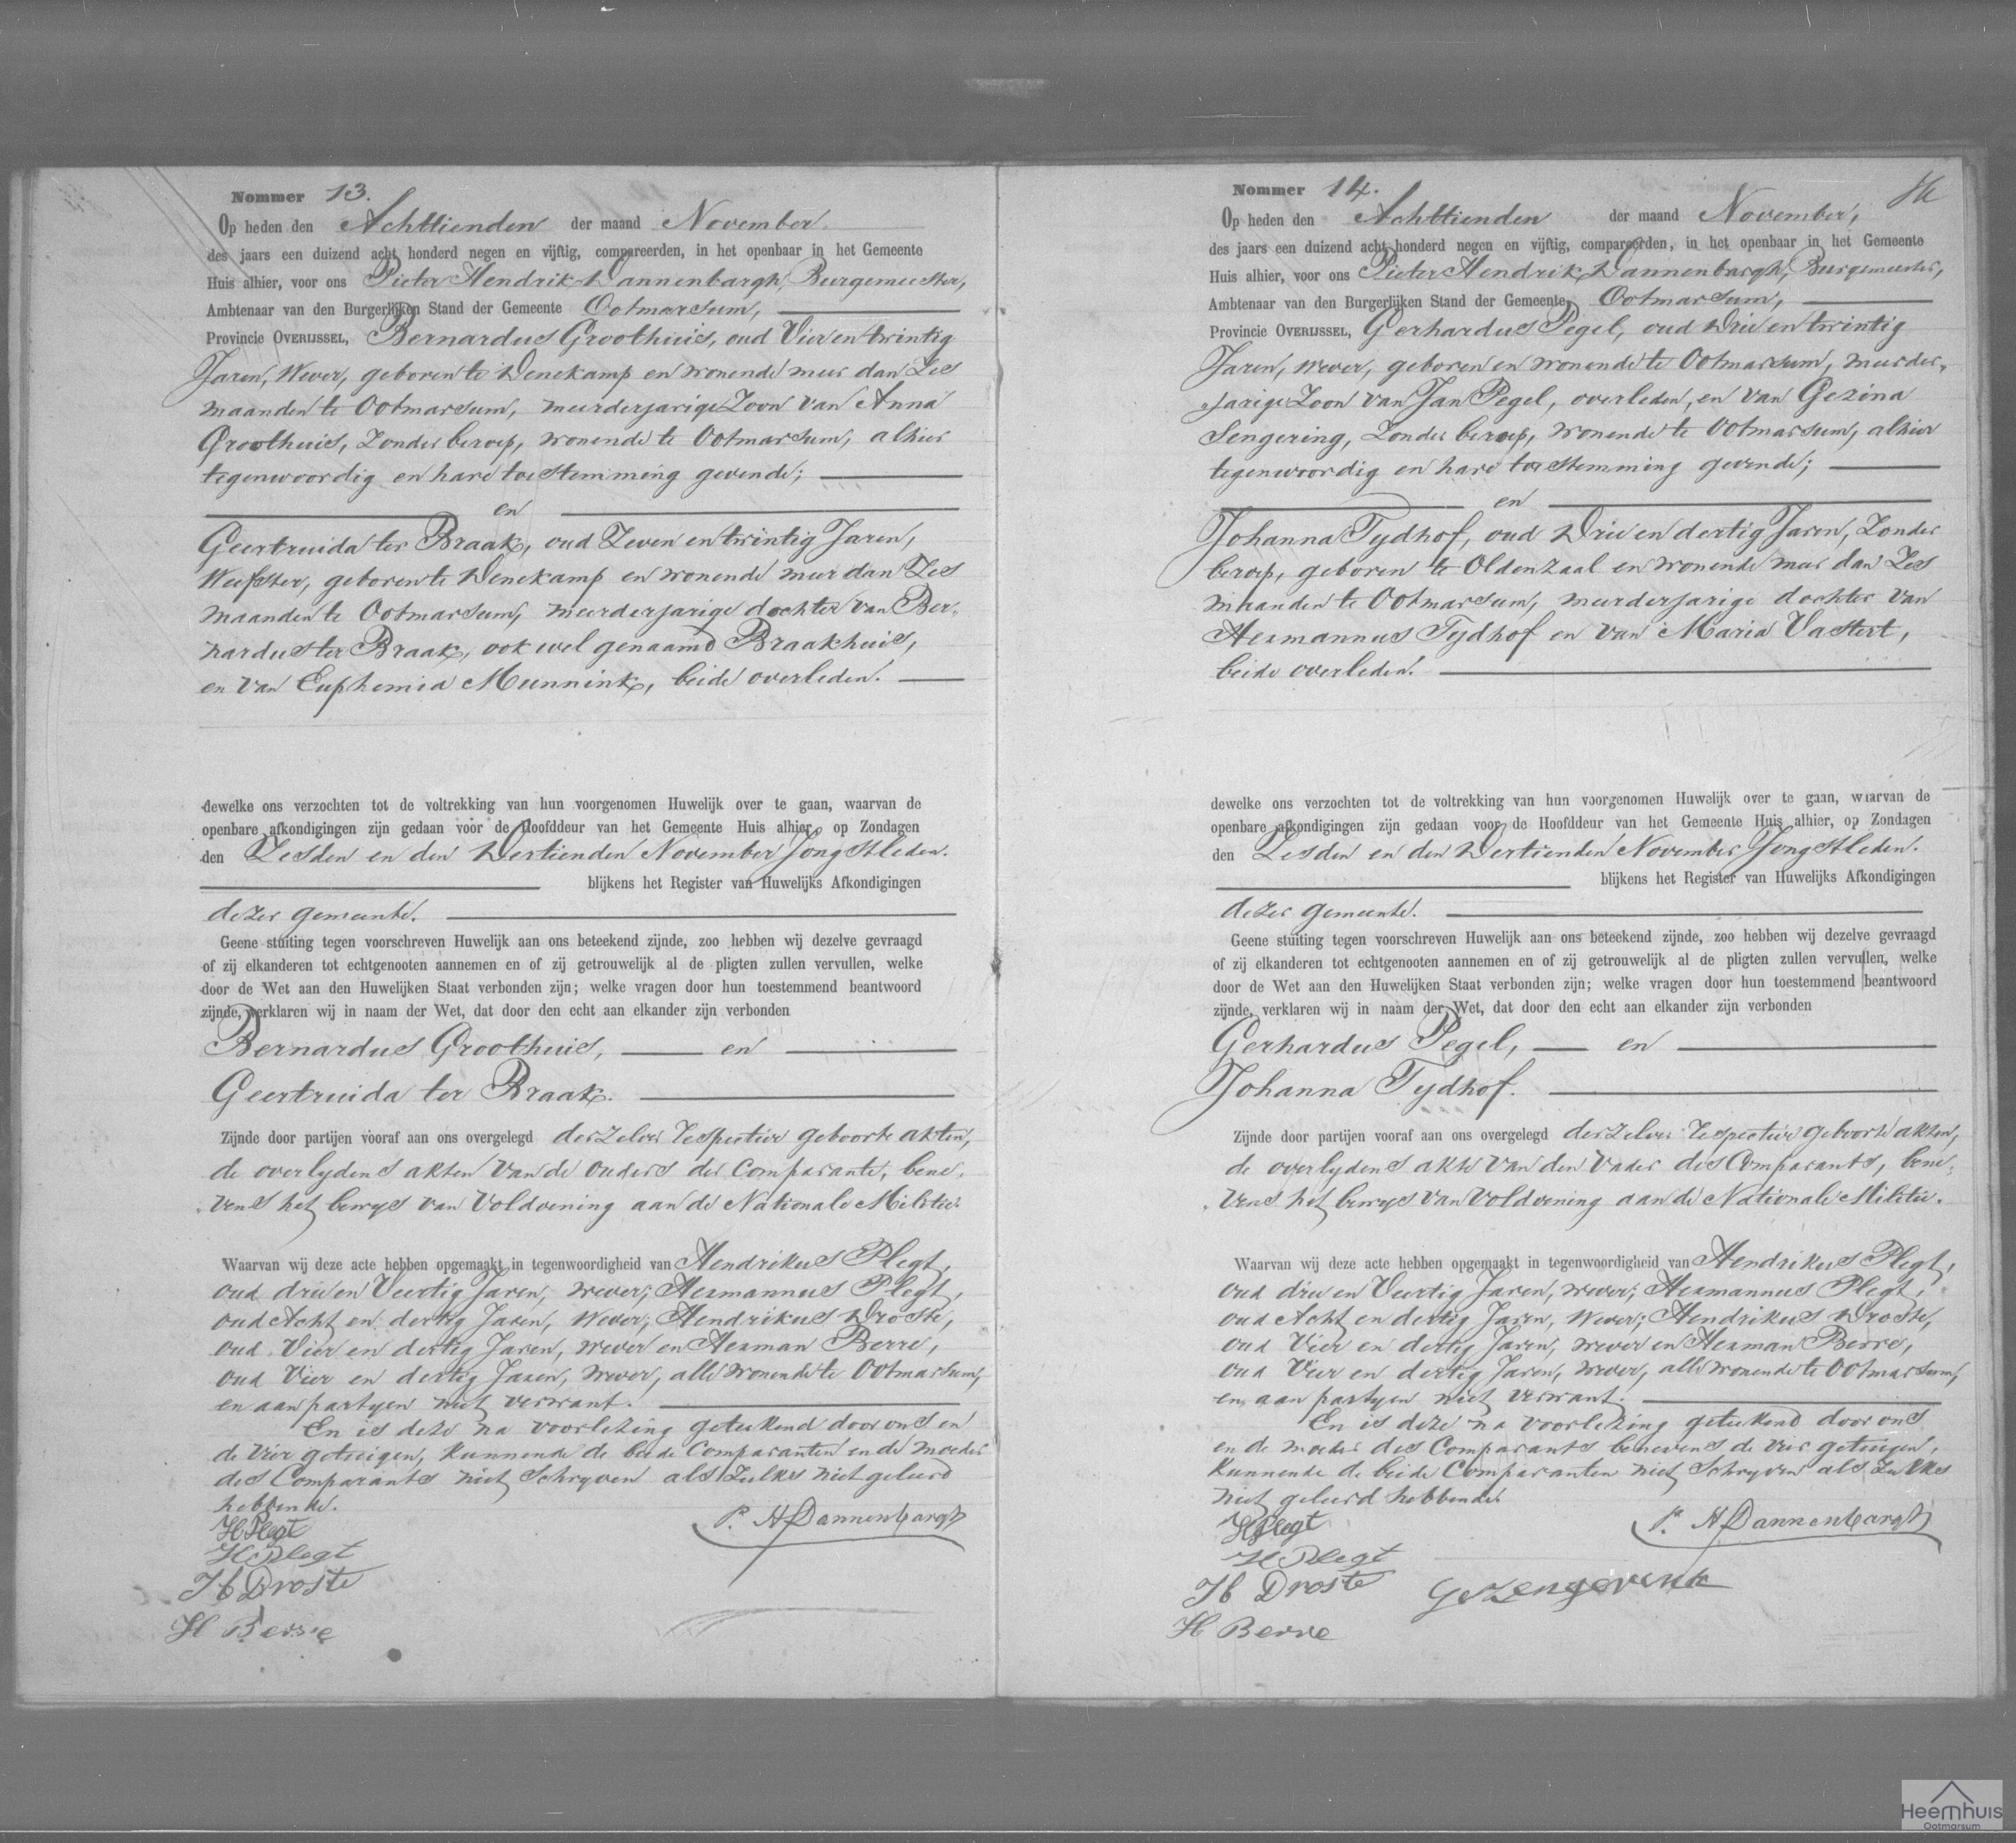 Nommer 13.
Op heden den Achttienden der maand November.
des jaars een duizend acht honderd negen en vijftig, compareerden, in het openbaar in het Gemeente
Huis alhier, voor ons Pieter Hendrik Dannenbargh, Burgemeester,
Ambtenaar van den Burgerlijken Stand der Gemeente Ootmarsum,
Provincie OVERIJSSEL, Bernardus Groothuis, oud Vier en twintig
Jaren, Wever, geboren te Denekamp en wonende meer dan Zes
maanden te Ootmarsum, meerderjarige Zoon van Anna
Groothuis, Zonder beroep, wonende te Ootmarsum, alhier
tegenwoordig en hare toestemming gevende;
en
Geertruida ter Braak, oud Zeven en twintig Jaren,
Weefster, geboren te Denekamp en wonende meer dan Zes
maanden te Ootmarsum, meerderjarige dochter van Ber-
nardus ter Braak, ook wel genaamd Braakhuis,
en van Euphemia Munnink, beide overleden.
dewelke ons verzochten tot de voltrekking van hun voorgenomen Huwelijk over te gaan, waarvan de
openbare afkondigingen zijn gedaan voor de Hoofddeur van het Gemeente Huis alhier, op Zondagen
den Zesden en den Dertienden November Jongstleden.
blijkens het Register van Huwelijks Afkondigingen
dezer gemeente.
Geene stuiting tegen voorschreven Huwelijk aan ons beteekend zijnde, zoo hebben wij dezelve gevraagd
of zij elkanderen tot echtgenooten aannemen en of zij getrouwelijk al de pligten zullen vervullen, welke
door de Wet aan den Huwelijken Staat verbonden zijn; welke vragen door hun toestemmend beantwoord
zijnde, verklaren wij in naam der Wet, dat door den echt aan elkander zijn verbonden
Bernardus Groothuis, en
Geertruida ter Braak.
Zijnde door partijen vooraf aan ons overgelegd derzelver respective geboorte akten,
de overlydens akten van de ouders der Comparante, bene-
vens het bewys van voldoening aan de Nationale Militie.
Waarvan wij deze acte hebben opgemaakt in tegenwoordigheid van Hendrikus Plegt,
oud drie en Veertig Jaren, wever; Hermannus Plegt,
oud Acht en dertig Jaren, Wever; Hendrikus Droste,
oud Vier en dertig Jaren, wever en Herman Berre,
oud Vier en dertig Jaren, wever, alle wonende te Ootmarsum,
en aan partyen niet verwant.
En is deze na voorlezing geteekend door ons en
de vier getuigen, kunnende de beide Comparanten en de moeder
des Comparants niet Schryven als Zulks niet geleerd
hebbende.
H Plegt
P. H Dannenbargh
H Plegt
H Droste
H Berre
Nommer 14.
Op heden den Achttienden der maand November,
des jaars een duizend acht honderd negen en vijftig, compareerden, in het openbaar in het Gemeente
Huis alhier, voor ons Pieter Hendrik Dannenbargh, Burgemeester,
Ambtenaar van den Burgerlijken Stand der Gemeente Ootmarsum,
Provincie OVERIJSSEL, Gerhardus Pegel, oud Drie en twintig
Jaren, wever, geboren en wonende te Ootmarsum, meerder-
jarige Zoon van Jan Pegel, overleden, en van Gezina
Sengering, Zonder beroep, wonende te Ootmarsum, alhier
tegenwoordig en hare toestemming gevende;
en
Johanna Tydhof, oud Drie en dertig Jaren, Zonder
beroep, geboren te Oldenzaal en wonende meer dan Zes
maanden te Ootmarsum, meerderjarige dochter van
Hermannus Tydhof en van Maria Vastert,
beide overleden.
dewelke ons verzochten tot de voltrekking van hun voorgenomen Huwelijk over te gaan, waarvan de
openbare afkondigingen zijn gedaan voor de Hoofddeur van het Gemeente Huis alhier, op Zondagen
den Zesden en den Dertienden November Jongstleden.
blijkens het Register van Huwelijks Afkondigingen
dezer gemeente.
Geene stuiting tegen voorschreven Huwelijk aan ons beteekend zijnde, zoo hebben wij dezelve gevraagd
of zij elkanderen tot echtgenooten aannemen en of zij getrouwelijk al de pligten zullen vervullen, welke
door de Wet aan den Huwelijken Staat verbonden zijn; welke vragen door hun toestemmend beantwoord
zijnde, verklaren wij in naam der Wet, dat door den echt aan elkander zijn verbonden
Gerhardus Pegel, en
Johanna Tydhof.
Zijnde door partijen vooraf aan ons overgelegd derzelver respective geboorte akten,
de overlydens akte van den Vader des Comparants, bene-
vens het bewys van voldoening aan de Nationale Militie.
Waarvan wij deze acte hebben opgemaakt in tegenwoordigheid van Hendrikus Plegt,
oud drie en Veertig Jaren, wever; Hermannus Plegt,
oud Acht en dertig Jaren, Wever; Hendrikus Droste,
oud Vier en dertig Jaren, wever en Herman Berre,
oud Vier en dertig Jaren, wever, alle wonende te Ootmarsum,
en aan partyen niet verwant.
En is deze na voorlezing geteekend door ons
en de moeder des Comparants benevens de vier getuigen,
kunnende de beide Comparanten niet Schryven als Zulks
niet geleerd hebbende.
H Plegt
P. H Dannenbargh
H Plegt
H Droste
H Berre
Heemhuis
Ootmarsum